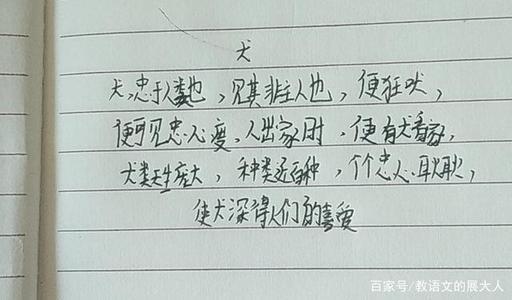 犬
犬,忠于人类也,见其非主人也,便狂吠,
便可见忠心度,人出家时,便有犬看家,
犬类生庞大,种类近百种,个个忠心耿耿,
使犬深得人们的喜爱
百家号/教语文的展大人